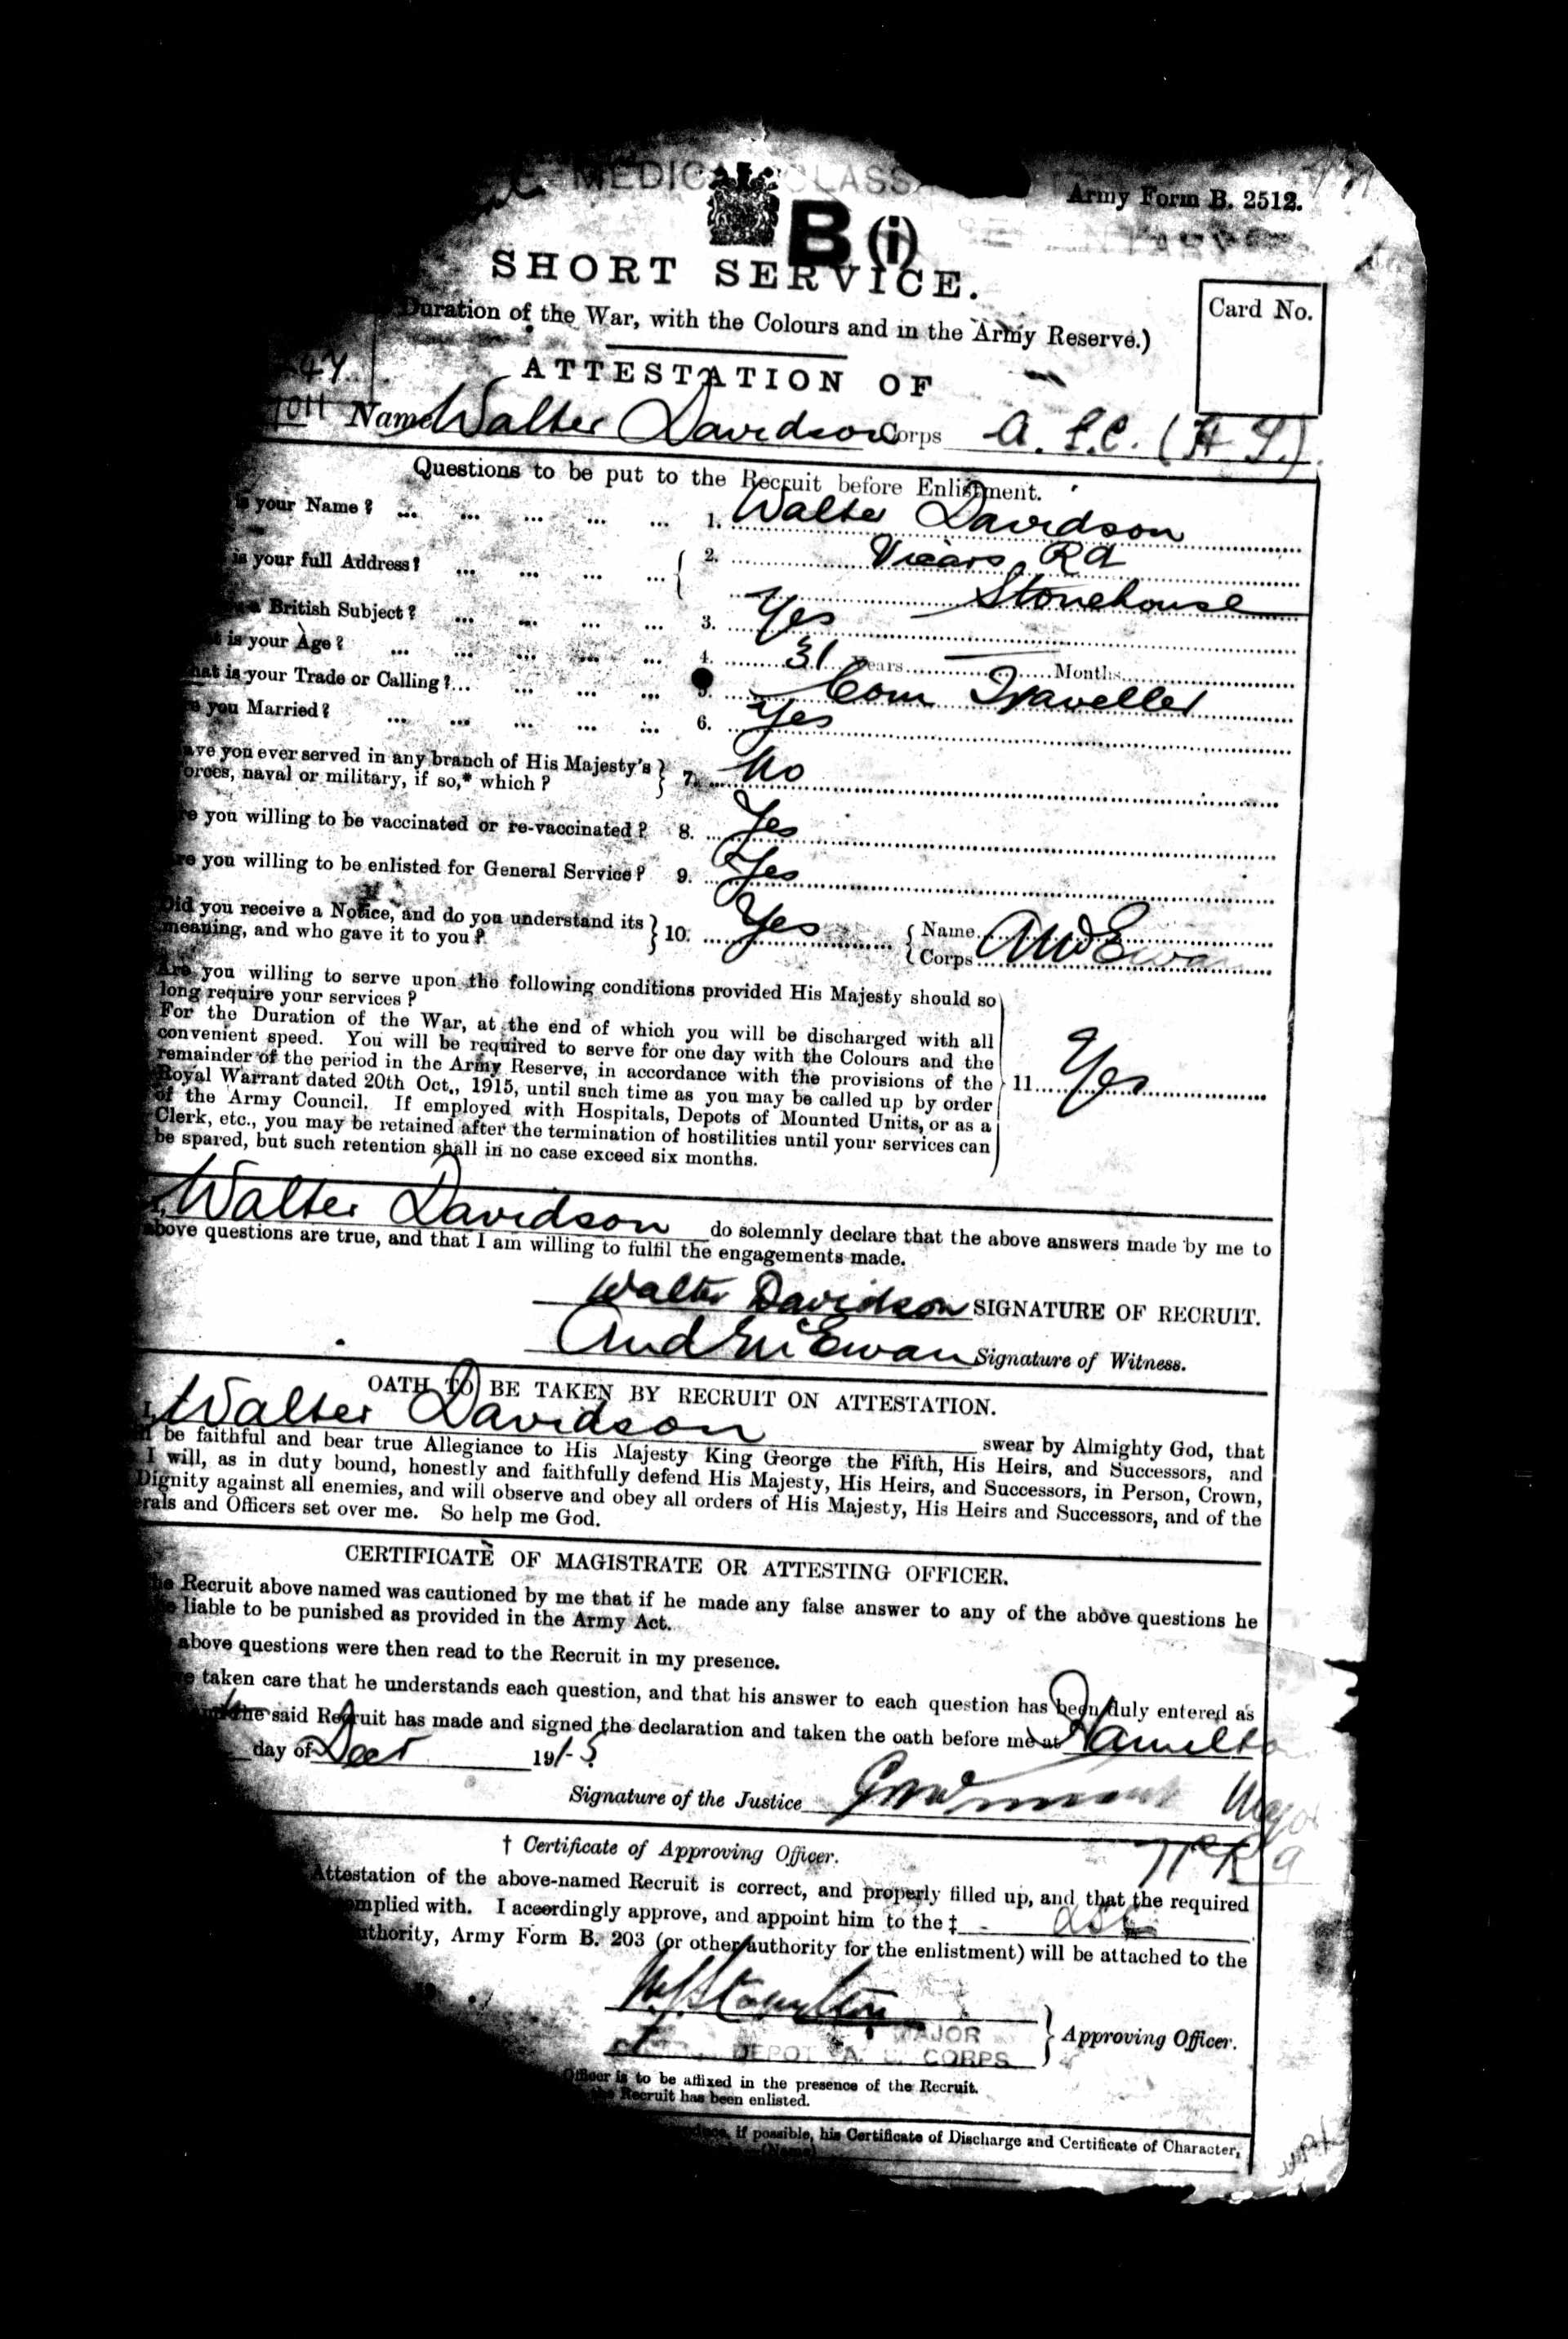 MEDICAL CLASS
Army Form B. 2512.
B (i)
SHORT SERVICE.
Duration of the War, with the Colours and in the Army Reserve.)
Card No.
ATTESTATION OF
Name Walter Davidson Corps A.S.C. (H T.)
Questions to be put to the Recruit before Enlistment.
is your Name? ... ... ... ... ... 1. Walter Davidson
is your full Address? ... ... ... ... 2. Vicars Rd
Stonehouse
a British Subject? ... ... ... ... 3. Yes
is your Age? ... ... ... ... ... 4. 31 Years — Months
hat is your Trade or Calling?... ... ... ... 5. Com Traveller
you Married? ... ... ... ... ... 6. Yes
ave you ever served in any branch of His Majesty's
orces, naval or military, if so,* which? } 7. No
re you willing to be vaccinated or re-vaccinated? 8. Yes
re you willing to be enlisted for General Service? 9. Yes
Did you receive a Notice, and do you understand its
meaning, and who gave it to you? } 10. Yes { Name
Corps
Are you willing to serve upon the following conditions provided His Majesty should so
long require your services?
For the Duration of the War, at the end of which you will be discharged with all
convenient speed. You will be required to serve for one day with the Colours and the
remainder of the period in the Army Reserve, in accordance with the provisions of the
Royal Warrant dated 20th Oct., 1915, until such time as you may be called up by order
of the Army Council. If employed with Hospitals, Depots of Mounted Units, or as a
Clerk, etc., you may be retained after the termination of hostilities until your services can
be spared, but such retention shall in no case exceed six months.
11. Yes
I, Walter Davidson do solemnly declare that the above answers made by me to
above questions are true, and that I am willing to fulfil the engagements made.
Walter Davidson SIGNATURE OF RECRUIT.
And McEwan Signature of Witness.
OATH TO BE TAKEN BY RECRUIT ON ATTESTATION.
I, Walter Davidson swear by Almighty God, that
be faithful and bear true Allegiance to His Majesty King George the Fifth, His Heirs, and Successors, and
I will, as in duty bound, honestly and faithfully defend His Majesty, His Heirs, and Successors, in Person, Crown,
Dignity against all enemies, and will observe and obey all orders of His Majesty, His Heirs and Successors, and of the
erals and Officers set over me. So help me God.
CERTIFICATE OF MAGISTRATE OR ATTESTING OFFICER.
he Recruit above named was cautioned by me that if he made any false answer to any of the above questions he
liable to be punished as provided in the Army Act.
above questions were then read to the Recruit in my presence.
taken care that he understands each question, and that his answer to each question has been duly entered as
the said Recruit has made and signed the declaration and taken the oath before me at Hamilto
day of Dec 1915
Signature of the Justice Major
† Certificate of Approving Officer.
Attestation of the above-named Recruit is correct, and properly filled up, and that the required
omplied with. I accordingly approve, and appoint him to the ‡ ASC
uthority, Army Form B. 203 (or other authority for the enlistment) will be attached to the
MAJOR
DEPOT A. CORPS
} Approving Officer.
Officer is to be affixed in the presence of the Recruit.
the Recruit has been enlisted.
if possible, his Certificate of Discharge and Certificate of Character,
(Name)